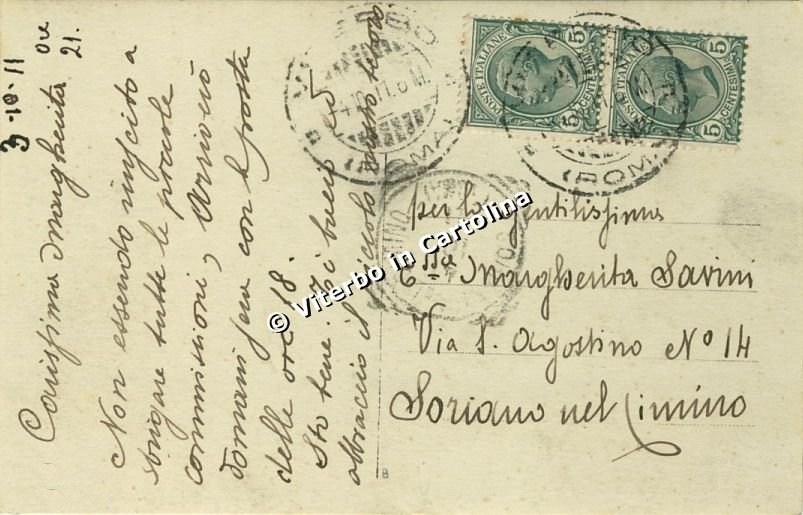 3-10-11 ore 21.
Carissima Margherita
Non essendo riuscito a
sbrigare tutte le piccole
commissioni, arriverò
domani sera con la posta
delle ore 18.
Sto bene. Ti bacio ed
abbraccio il piccolo nostro
per la gentilissima
Margherita Savini
Via S. Agostino Nº 14
Soriano nel Cimino
POSTE ITALIANE
5 CENTESIMI 5
POSTE ITALIANE
5 CENTESIMI 5
(ROMA)
(ROMA)
© Viterbo in Cartolina
B